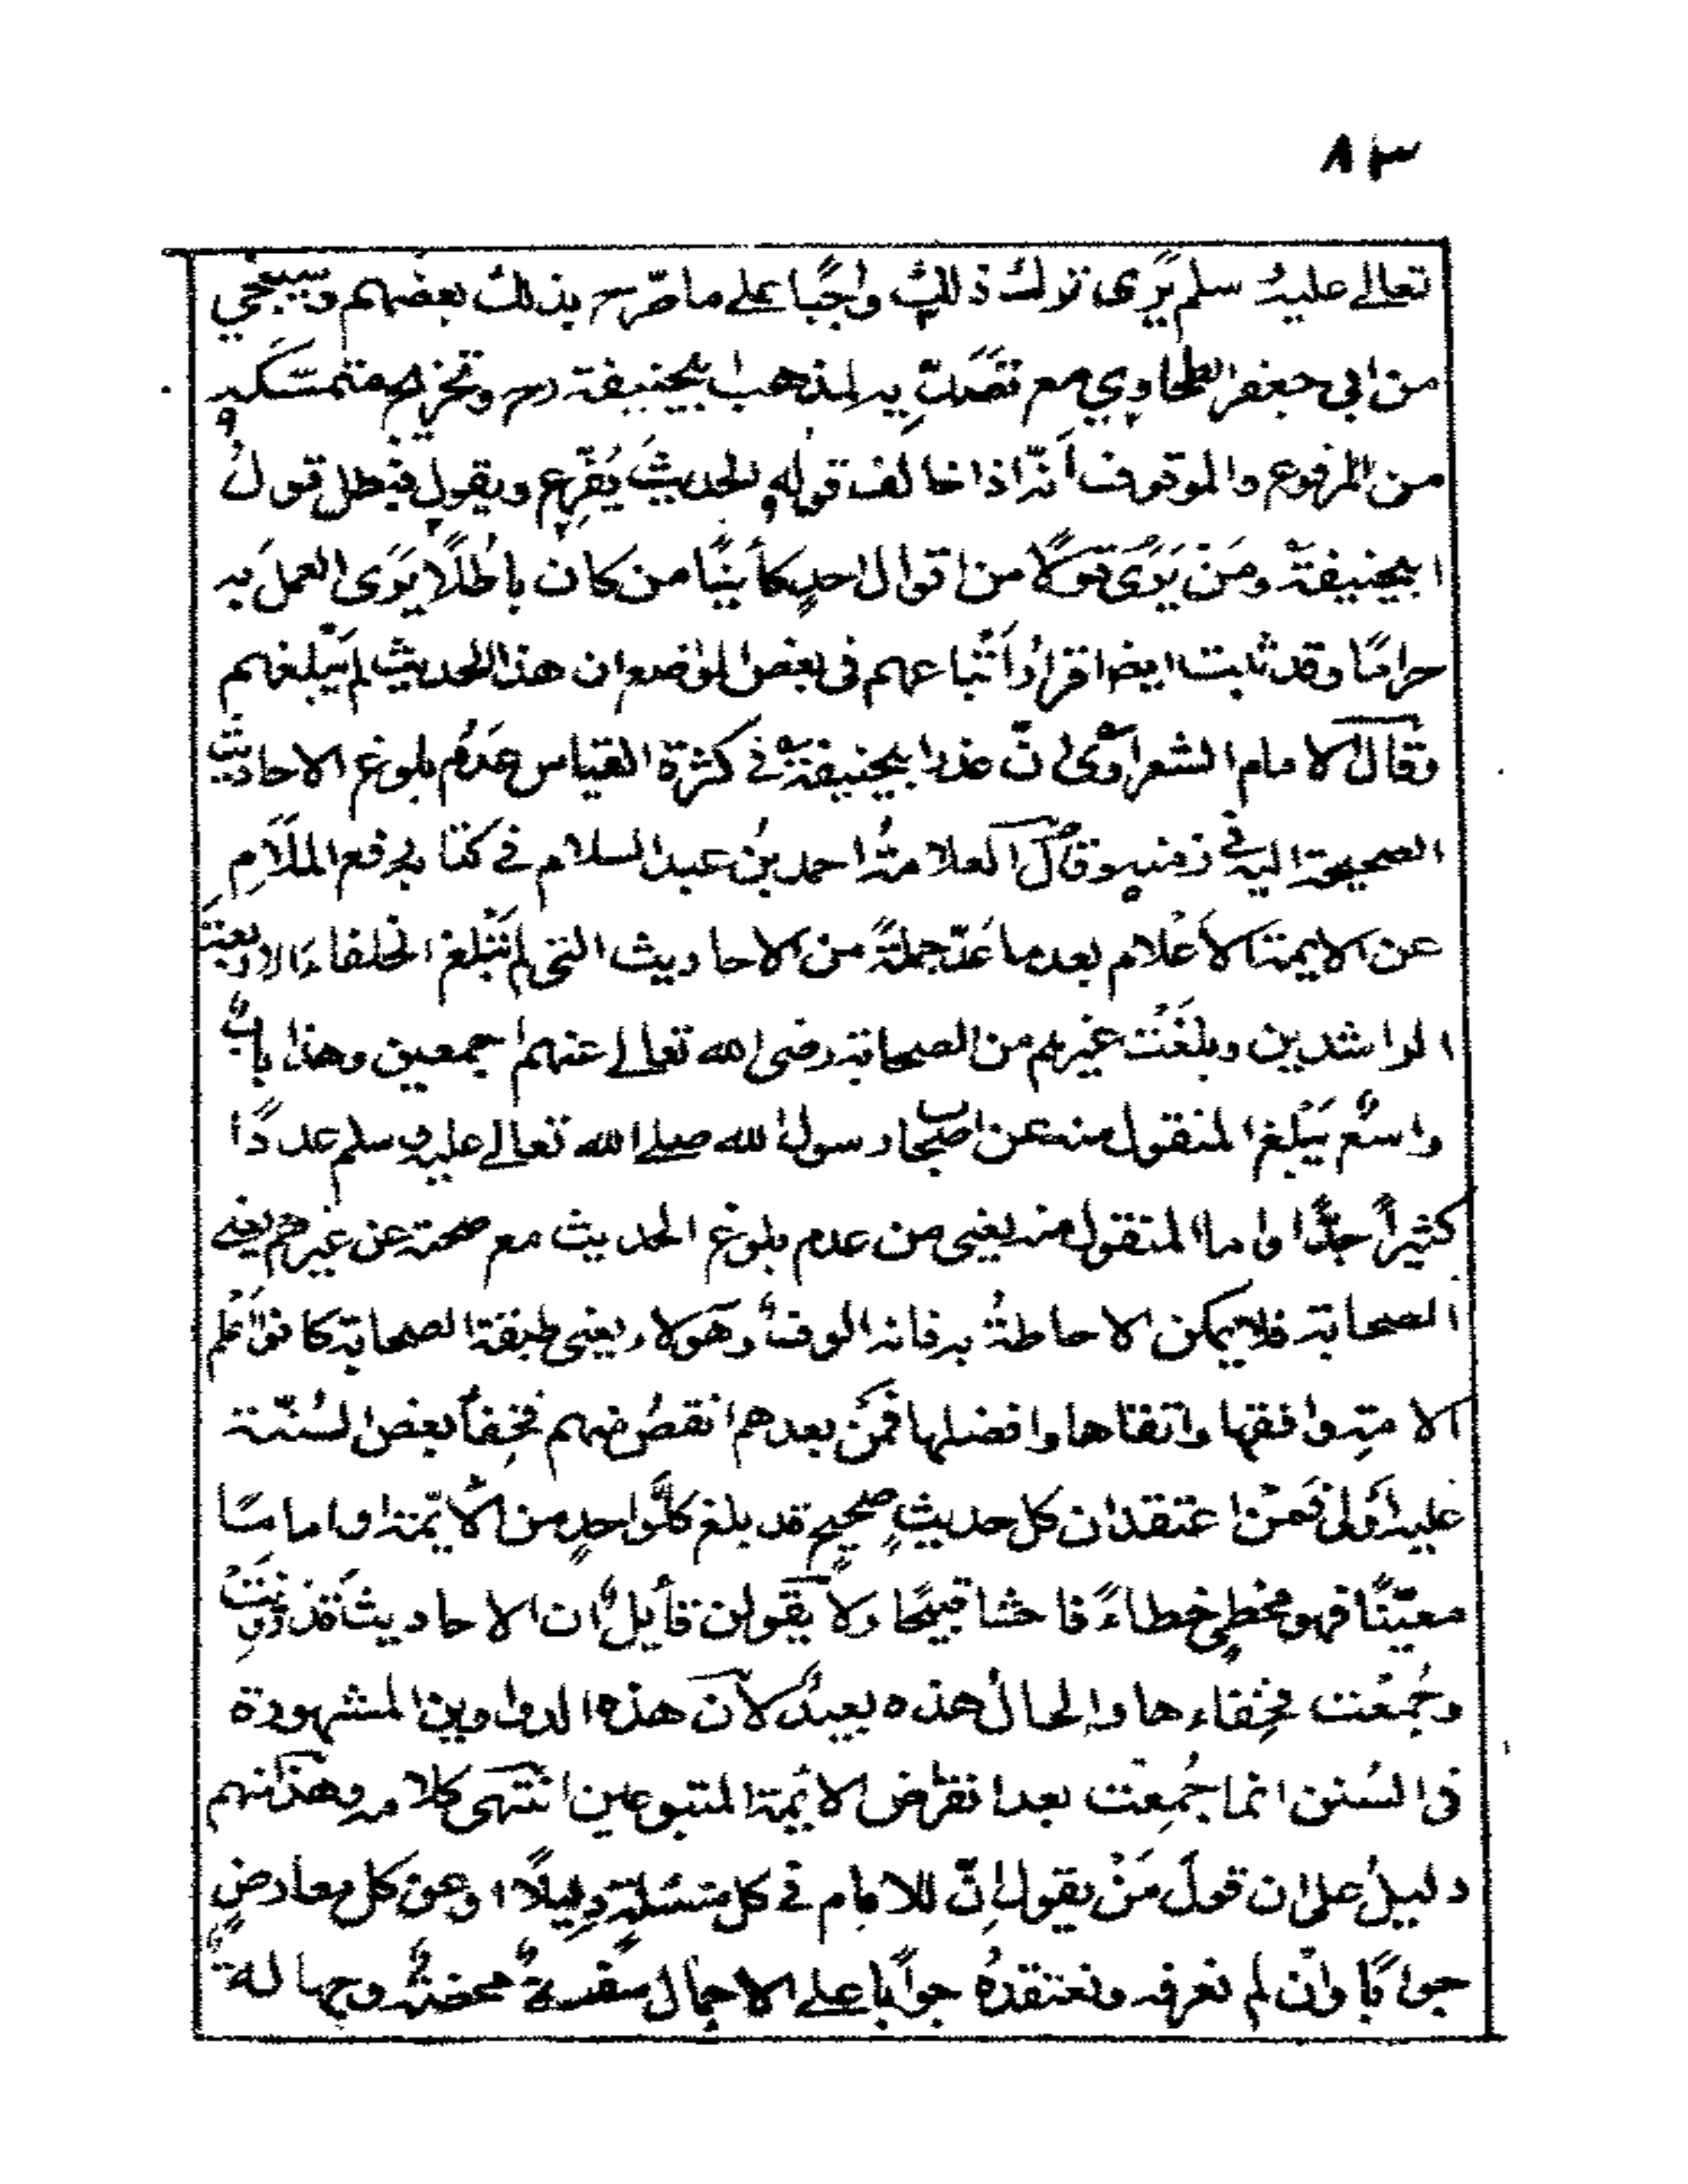 ٨٣
تعالى عليه وسلم يَرى ترك ذلك واجبًا على ما صرّح بذلك بعضهم وسيجي
من ابي جعفر الطحاوي مع تصدّيه لمذهب ابيحنيفة رح وتخريج متمسّكه
من المرفوع والموقوف أنّه اذا خالف قوله الحديثَ يُفَرِّع ويقول فبطل قولُ
ابيحنيفةَ ومَنْ يَرَى قولًا من اقوال احدٍ كأينًا من كان باطلًا يَرَى العمل به
حرامًا وقد ثابت ايضا اقرارُ اَتْباعهم فى بعض المواضع ان هذا الحديث لم يَبْلغهم
وقال الامام الشعراوىّ انّ عذر ابيحنيفةَ فے كثرة القياس عَدَمُ بلوغ الاحاديث
الصحيحة اليه فى زمنه وقال العلامةُ احمد بنُ عبد السلام فے كتابه رفع المَلَامِ
عن الايمة الأَعْلام بعد ما عَدّ جملةً من الاحاديث التى لم تَبْلغ الخلفاءَ الاربعةَ
الراشدين وبلغَتْ غيرهم من الصحابة رضى الله تعالے عنهم اجمعين وهذا بابٌ
واسعٌ يَبْلغ المنقول منه عن اصحاب رسول الله صلے الله تعالے عليه وسلم عددًا
كثيراً جدًّا واما المنقول منه يعنى من عدم بلوغ الحديث مع صحته عن غيرهم يعنے
الصحابة فلا يمكن الاحاطةُ به فانه الوفٌ وهولاء يعنى طبقة الصحابة كانوا اَعْلم
الامةِ وافقهها واتقاها وافضلها فمَنْ بعدهم انقصُ منهم فخِفاُ بعض السُنّة
عليه اَولى فمَنْ اعتقد ان كل حديثٍ صحيحٍ قد بلغ كلَّ واحدٍ من الأيّمة او اماما
معيّنًا فهو مخطِی خطاءً فاحشا قبيحًا ولا يقولن قأيلٌ ان الاحاديث قَد دُوِّنَتْ
وجُمِعْت فخِفاءها والحالُ هذه بعيدٌ لانّ هذه الدواوين المشهورة
فى السُنن انما جُمِعَت بعد انقراض الائمة المتبوعين انتهى كلامه وهذا منهم
دليلٌ على ان قولَ مَنْ يقول اِنّ للامام فے كل مسئلةٍ دليلًا وعن كل معارضٍ
جوابًا وان لم نعرفه ونعتقدُه جوابًا على الاجمال محضةٌ وجهالةٌ